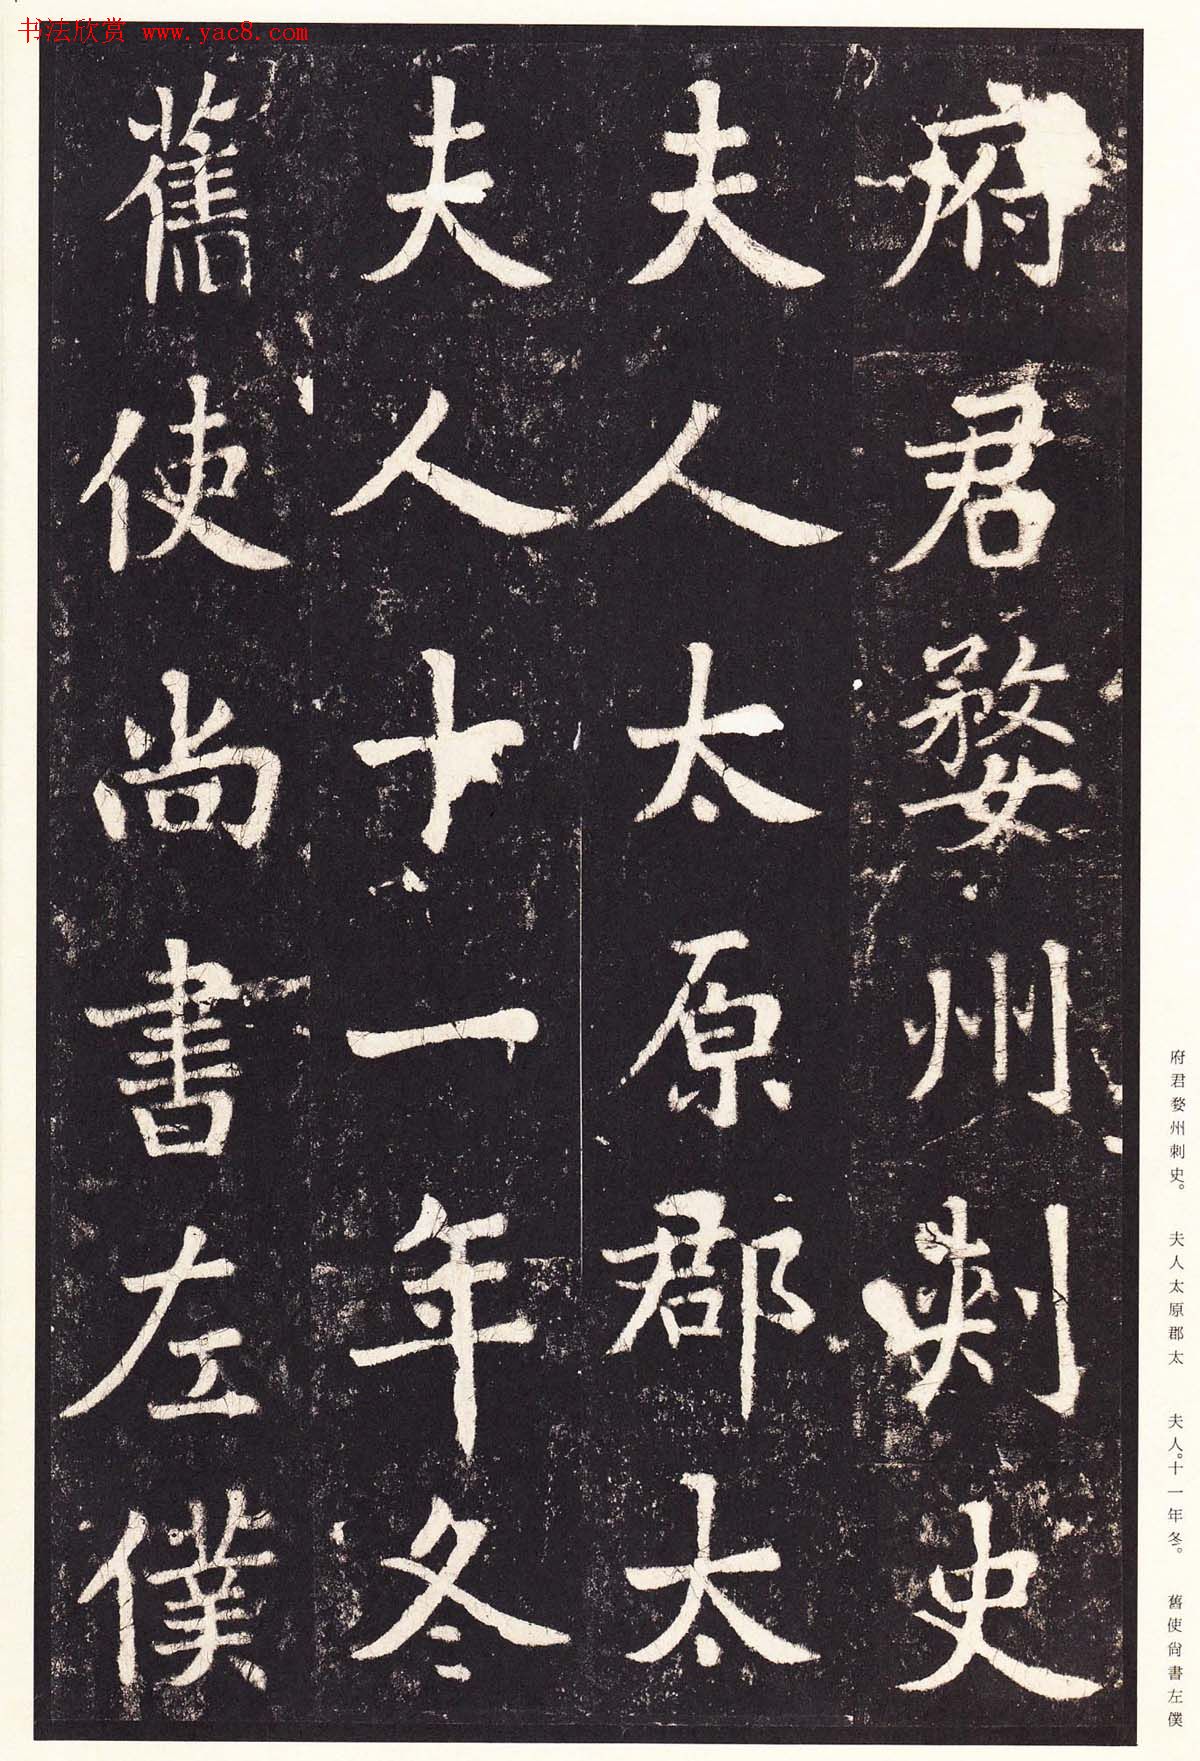 书法欣赏 www.yac8.com
府君婺州刺史
夫人太原郡太
夫人十一年冬
舊使尚書左僕
府君婺州刺史。 夫人太原郡太 夫人。十一年冬。 舊使尚書左僕